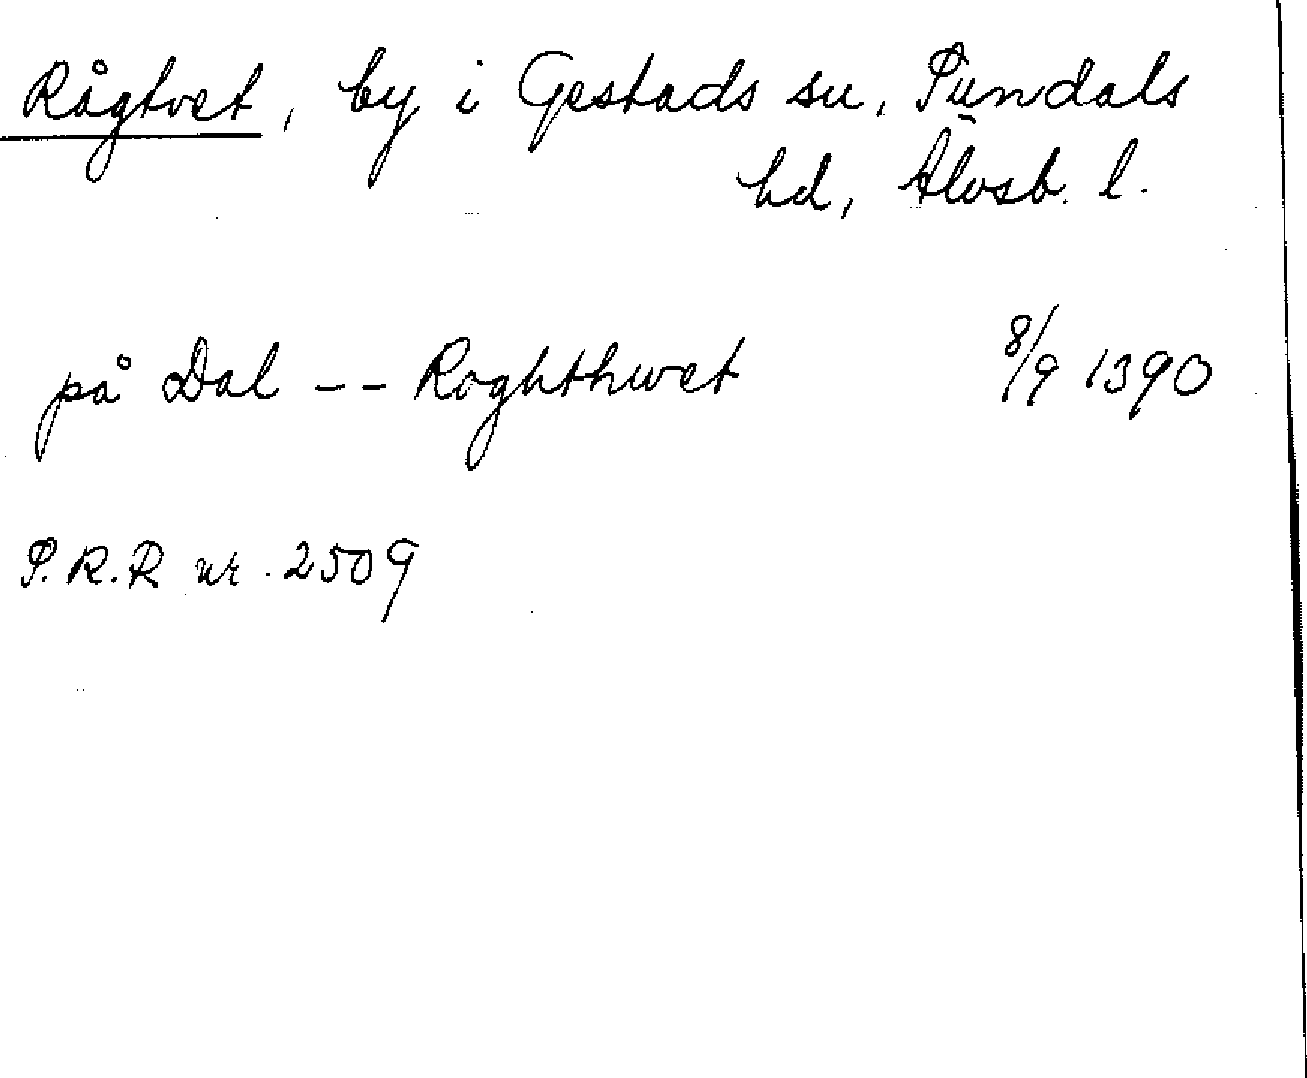 Rågtvet, by i Gestads sn, Sundals
hd, Älvsb. l.
på Dal -- Roghthwet 8/9 1390
P.R.R nr. 2509